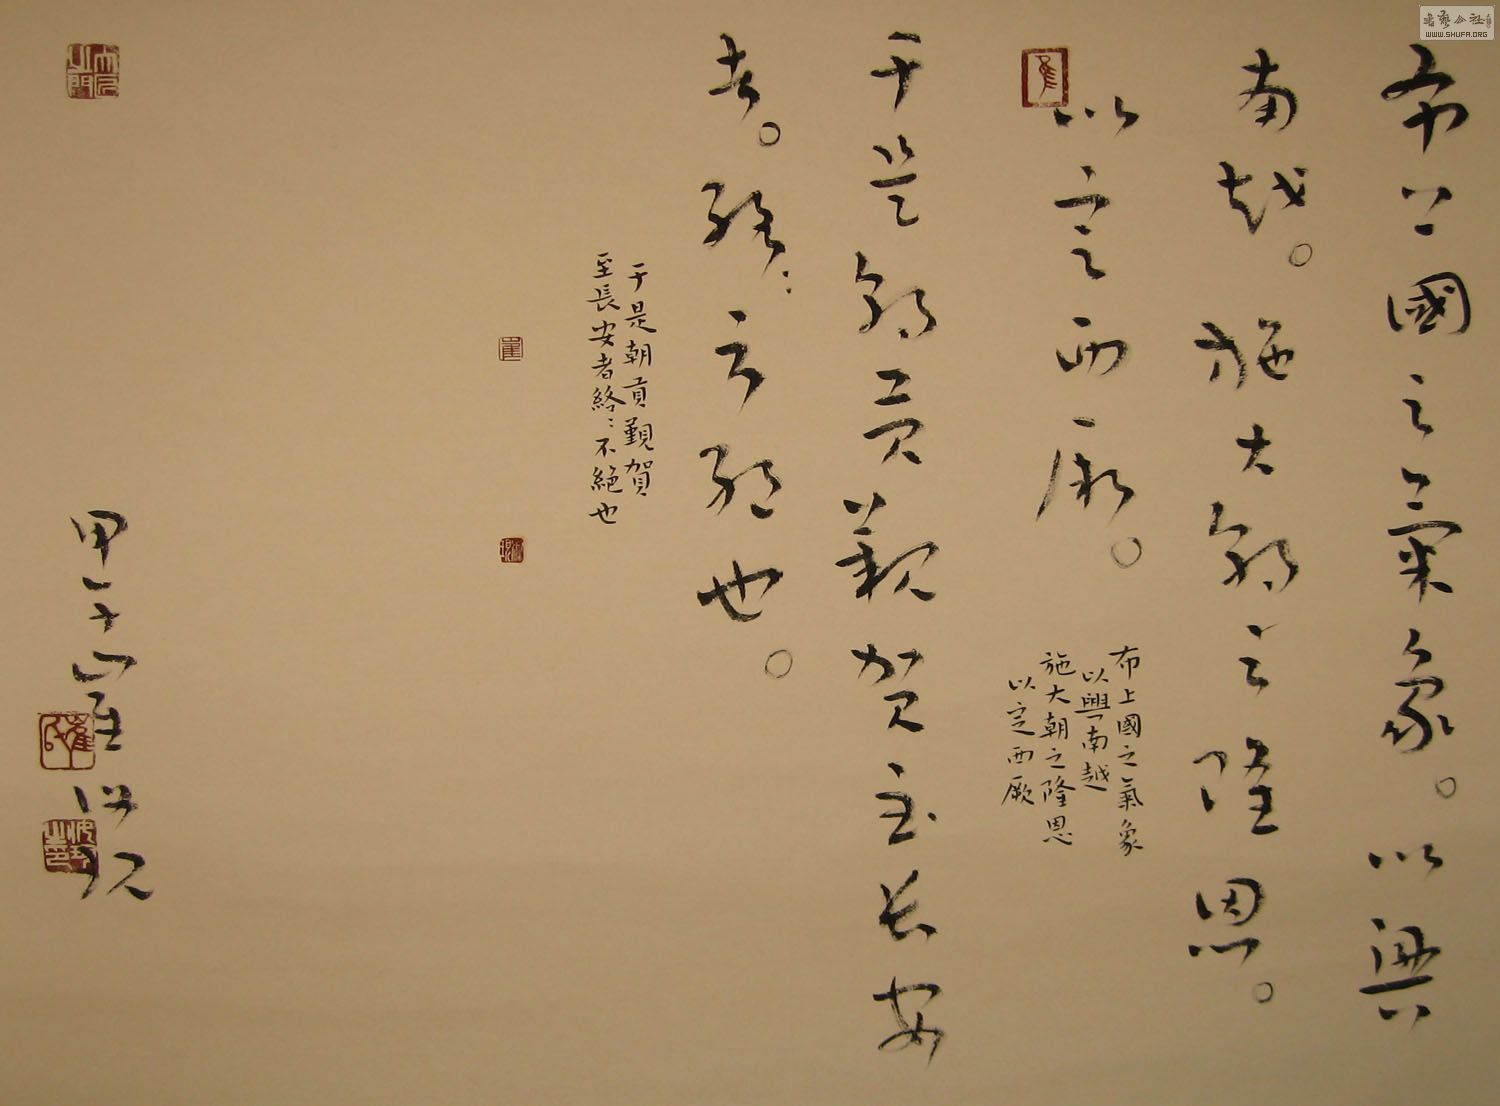 書藝公社
WWW.SHUFA.ORG
布上國之氣象。以興
南越。施大朝之隆恩。
以定西厥。
布上國之氣象
以興南越
施大朝之隆恩
以定西厥
于是朝貢覲賀至長安
者。絡：不絕也。
于是朝貢覲賀
至長安者絡：不絕也
崔
甲午崔